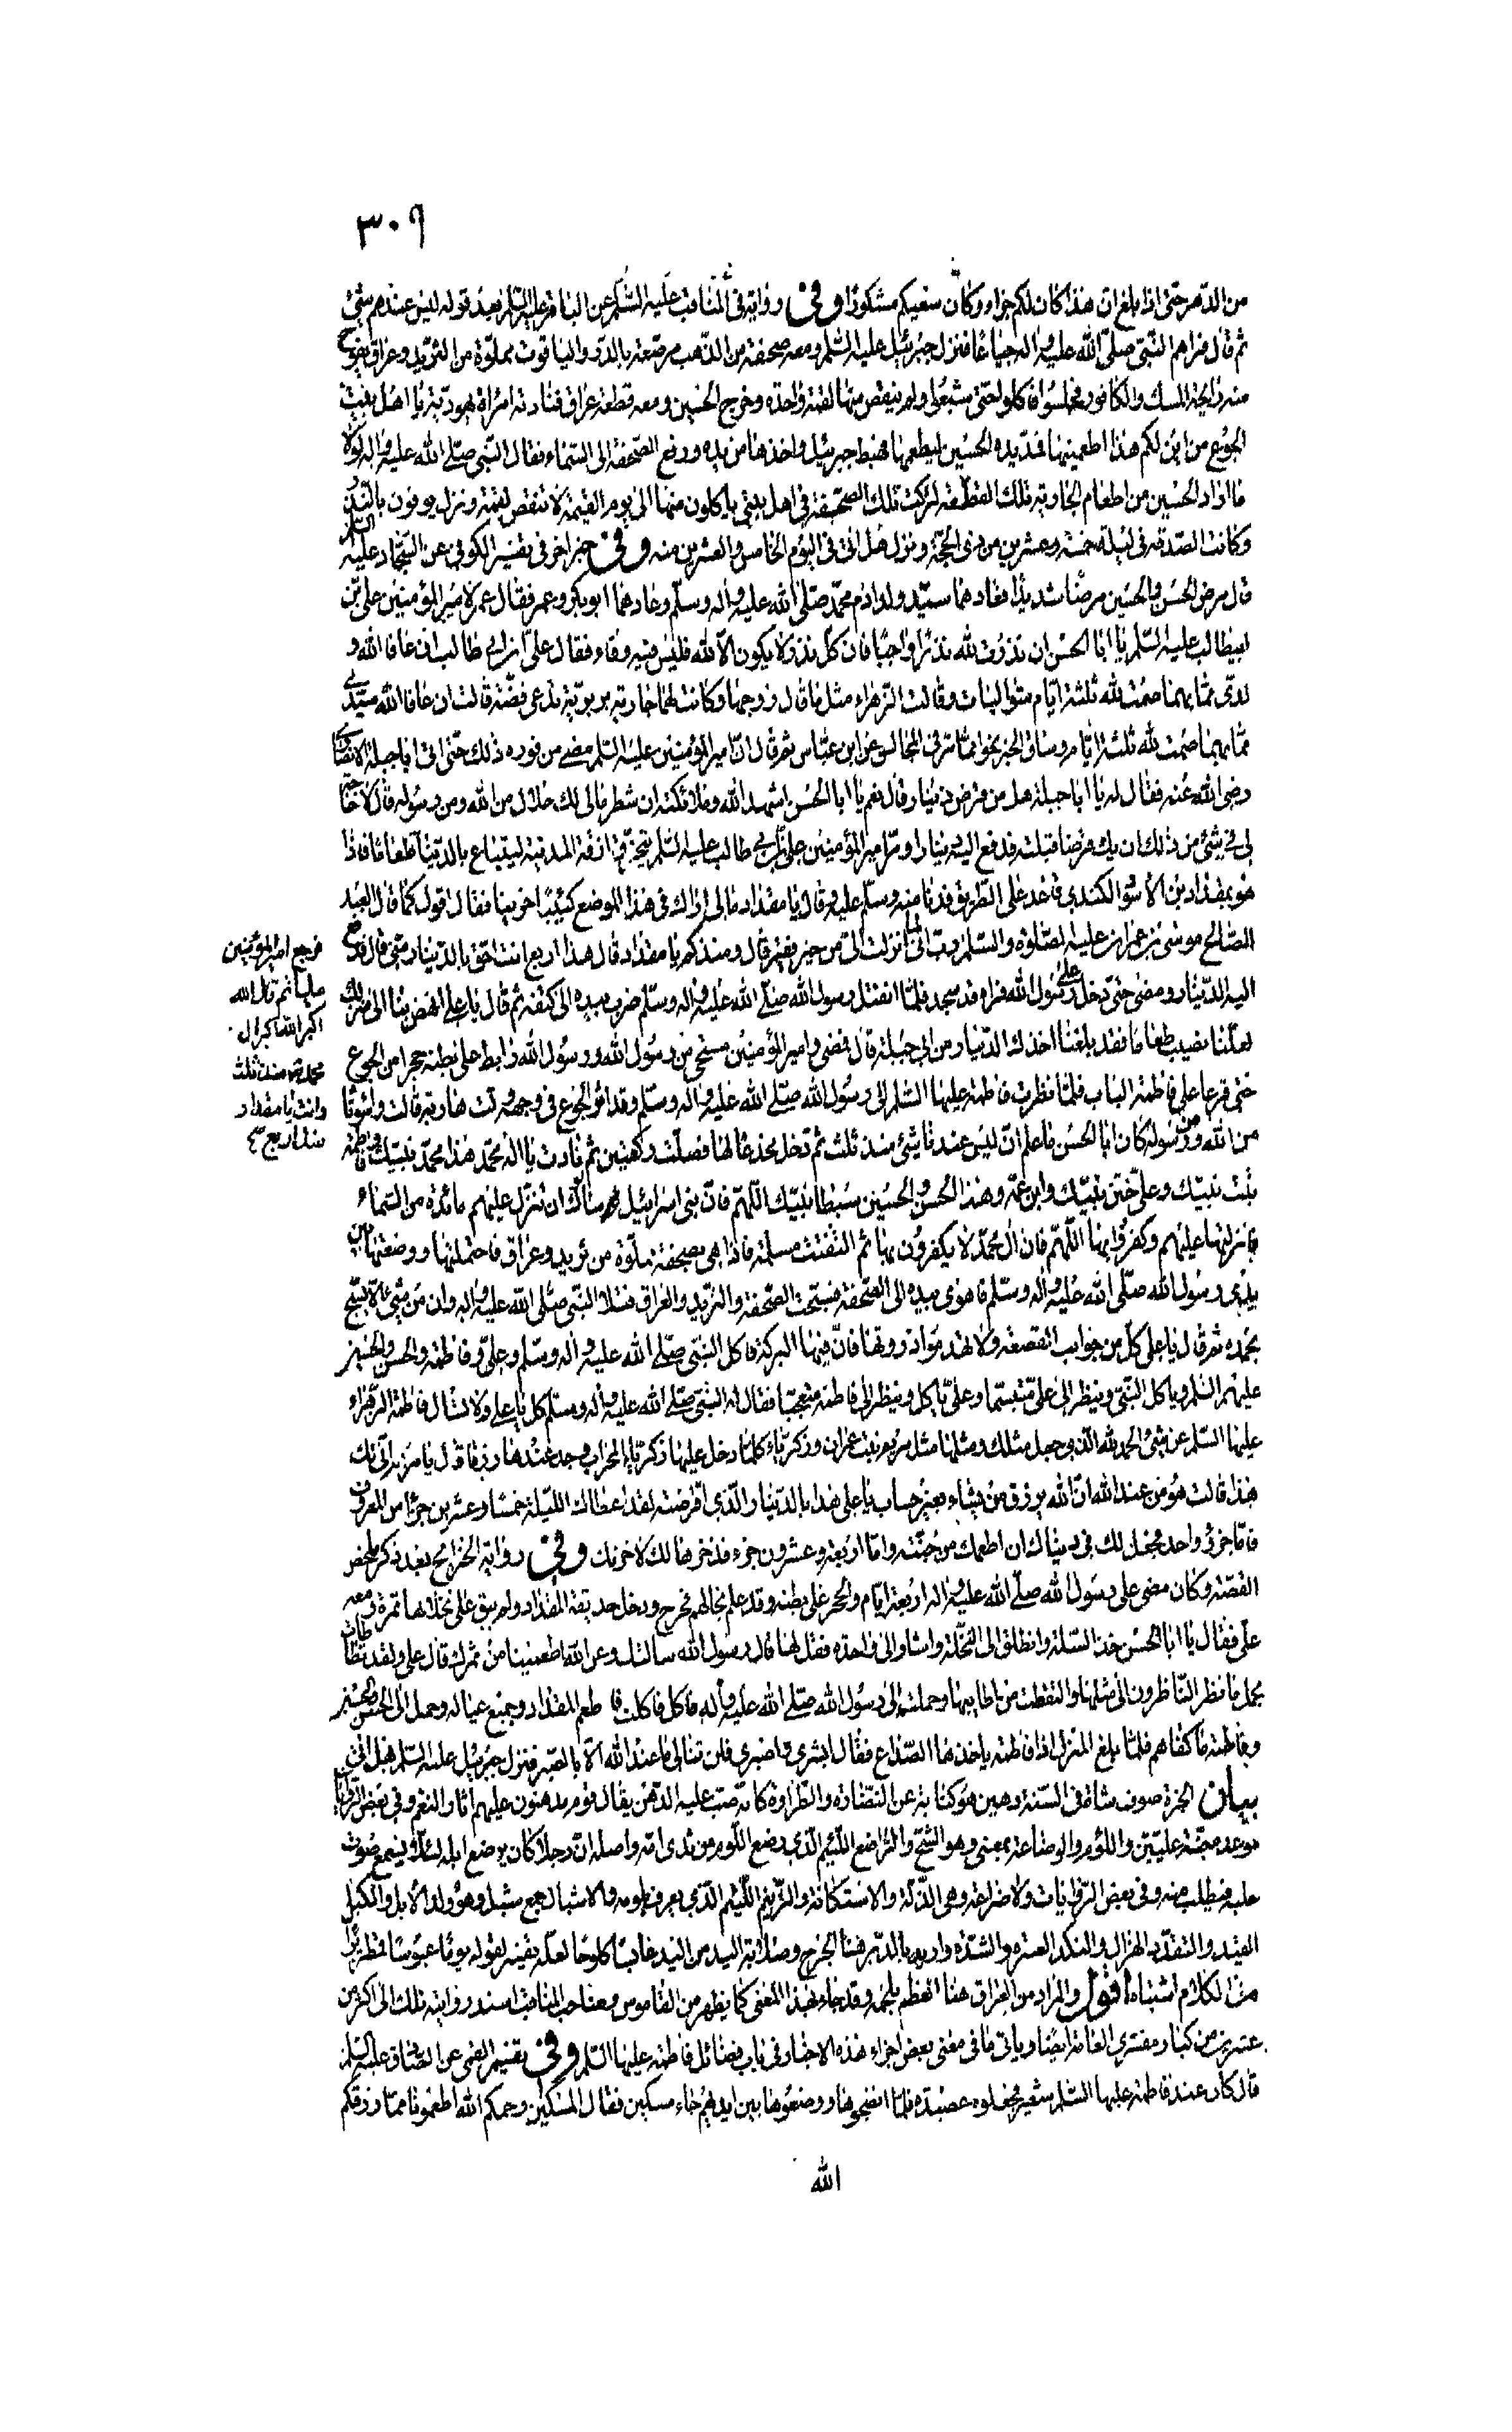 ٣٠٩
من الدهر حتى اذا بلغ ان هذا كان لكم جزاء وكان سعيكم مشكورا وفى رواية فى المناقب عليه السلم عن الباقر عليه السلم بعد قوله ليس عندهم شئ
ثم قال فراهم النبى صلى الله عليه واله جياعا فنزل جبرئيل عليه السلم ومعه صحفة من الذهب مرصعة بالدر والياقوت مملوة من الثريد وعراق يفوح
منه رايحة المسك والكافور فجلسوا فاكلوا حتى شبعوا ولم ينقص منها لقمة واحدة وخرج الحسين ومعه قطعة عراق فنادته امراة يهودية يا اهل بيت
الجوع من اين لكم هذا اطعمنيها فمد يده الحسين ليطعمها فهبط جبرئيل واخذها من يده ورفع الصحفة الى السماء فقال النبى صلى الله عليه واله لولا
ما اراد الحسين من اطعام الجارية تلك القطعة لتركت تلك الصحيفة فى اهل بيتى ياكلون منها الى يوم القيمة لا تنقص لقمة ونزل يوفون بالنذر
وكانت الصدقة فى ليلة خمس وعشرين من ذى الحجة ونزل هل اتى فى اليوم الخامس والعشرين منه وفى خبر اخر فى تفسير الكوفى عن السجاد عليه السلم
قال مرض الحسن والحسين مرضا شديدا فعادهما سيد ولد ادم محمد صلى الله عليه واله وسلم وعادهما ابو بكر وعمر فقال عمر لامير المؤمنين على بن
ابيطالب عليه السلم يا ابا الحسن ان نذرت لله نذرا واجبا فان كل نذر لا يكون لله فليس فيه وفاء فقال على بن ابى طالب ان عافا الله و
لدى مما بهما صمت لله ثلثة ايام متواليات وقالت الزهراء مثل ما قال زوجها وكانت لهما جارية بربرية تدعى فضة قالت ان عافا الله سيدى
مما بهما صمت لله ثلثة ايام وساق الخبر نحوا مما مر فى المجالس عن ابن عباس ثم قال ان امير المؤمنين عليه السلم مضى من فوره ذلك حتى اتى ابا جبلة الانصارى
رضى الله عنه فقال له يا ابا جبلة هل من قرض دينار قال نعم يا ابا الحسن اشهد الله وملائكته ان شطر مالى لك حلال من الله ومن رسوله قال لا حاجة
لى فى شئ من ذلك ان يك قرضا قبلته فدفع اليه دينارا ومر امير المؤمنين على بن ابى طالب عليه السلم يتخرق ازقة المدينة ليبتاع بالدينار طعاما فاذا
هو بمقداد بن الاسود الكندى قاعد على الطريق فدنا منه وسلم عليه وقال يا مقداد مالى اراك فى هذا الموضع كئيبا حزينا فقال اقول كما قال العبد
الصالح موسى بن عمران عليه الصلوة والسلم رب انى لما انزلت الى من خير فقير قال ومنذ كم يا مقداد قال هذا اربع انت احق بالدينار منى قال فدفع
اليه الدينار ومضى حتى دخل على رسول الله فراه قد سجد فلما انفتل رسول الله صلى الله عليه واله وسلم ضرب بيده الى كتفه ثم قال يا على انهض بنا الى منزلك
لعلنا نصيب طعاما فقد بلغنا اخذك الدينار من ابى جبلة قال فمضى وامير المؤمنين مستحى من رسول الله ورسول الله رابط على بطنه حجرا من الجوع
حتى قرعا على فاطمة الباب فلما نظرت فاطمة عليها السلم الى رسول الله صلى الله عليه واله وسلم وقد اثر الجوع فى وجهه ولت هاربة قالت واسوتا
من الله ومن رسوله كان ابا الحسن ما علم ان ليس عندنا شئ منذ ثلث ثم تدخل مخدعا لها فصلت ركعتين ثم نادت يا اله محمد هذا محمد نبيك وفاطمة
بنت نبيك وعلى ختن نبيك وابن عمه وهذا الحسن والحسين سبطا نبيك اللهم فان بنى اسرائيل سالوك ان تنزل عليهم مائدة من السماء
فانزلتها عليهم وكفروا بها اللهم فان ال محمد لا يكفرون بها ثم التفتت مسلمة فاذا هى بصحفة مملوة من ثريد وعراق فاحتملتها ووضعتها بين
يدى رسول الله صلى الله عليه واله وسلم فاهوى بيده الى الصحفة فسبحت الصحفة والثريد والعراق فتلا النبى صلى الله عليه واله وان من شئ الا يسبح
بحمده ثم قال يا على كل من جوانب القصعة ولا تهدموا ذروتها فان فيها البركة فاكل النبى صلى الله عليه واله وسلم وعلى وفاطمة والحسن والحسين
عليهم السلم وياكل النبى وينظر الى على متبسما وعلى ياكل وينظر الى فاطمة متعجبا فقال له النبى صلى الله عليه واله وسلم كل يا على ولا تسال فاطمة الزهراء
عليها السلم عن شئ الحمد لله الذى جعل مثلك ومثلها مثل مريم بنت عمران وزكرياء كلما دخل عليها زكرياء المحراب وجد عندها رزقا قال يا مريم انى لك
هذا قالت هو من عند الله ان الله يرزق من يشاء بغير حساب يا على هذا بالدينار الذى اقرضته لقد اعطاك الليلة خمسا وعشرين جزءا من المعروف
فاما جزؤ واحد فجعل لك فى دنياك ان اطعمك من جنته واما اربعة وعشرون جزء فذخرها لك لاخرتك وفى رواية الخرايج بعد ذكر ملخص
القصة وكان مضى على رسول الله صلى الله عليه واله اربعة ايام والحجر على بطنه وقد علم بحالهم فخرج ودخل حديقة المقداد ولم يبق على نخلاتها تمرة ومعه
على فقال يا ابا الحسن خذ السلة وانطلق الى النخلة واشار الى واحدة فقل لها قال رسول الله سالتك عن الله اطعمينا من تمرك قال على ولقد تطاطات
بحمل ما نظر الناظرون الى مثلها والتقطت من اطايبها وحملت الى رسول الله صلى الله عليه واله فاكل فاكلت فاطعم المقداد وجميع عياله وحمل الى الحسن والحسين
وفاطمة ما كفاهم فلما بلغ المنزل اذا فاطمة ياخذها الصداع فقال ابشرى واصبرى فلن تنالى ما عند الله الا بالصبر فنزل جبرئيل عليه السلم بهل اتى
بيان الجزة صوف شاة فى السنة دهين هو كناية عن النضارة والطراوة كانه صب عليه الدهن يقال قوم مدهنون عليهم اثار النعم وفى بعض الروايات
موعده جنة عليين واللؤم والوضاعة بمعنى وهو الشح والراضع اللئيم الذى رضع اللوم من ثدى امه واصله ان رجلا كان يرضع ابله لئلا يسمع صوت
حلبه فيطلب منه وفى بعض الروايات ولا ضراعة وهى الذلة والاستكانة والزنيم اللئيم الذى يعرف بلومه والاشبال جمع شبل وهو ولد الابل والكبل
القيد والتقدد الهزال والنكد العسر والشدة واريد بالدبر هنا الجرح وصلابة اليد من اليد عابسا كلوحا لعله تفسير لقوله يوما عبوسا قمطريرا
من الكلام اشتباه اقول والمراد من العراق هنا العظم بلحمه وقد جاء بهذا المعنى كما يظهر من القاموس وصاحب المناقب اسند رواية تلك الى اكثر من
عشرين من كبار مفسرى العامة ايضا وياتى ما فى معنى بعض اجزاء هذه الاخبار فى باب فضائل فاطمة عليها السلم وفى تفسير القمى عن الصادق عليه السلم
قال كان عند فاطمة عليها السلم شعير فجعلوه عصيدة فلما انضجوها ووضعوها بين ايديهم جاء مسكين فقال المسكين رحمكم الله اطعمونا مما رزقكم
الله
فرجع امير المؤمنين
مليا ثم قال الله
اكبر الله اكبر ال
محمد منذ ثلث
وانت يا مقداد
منذ اربع